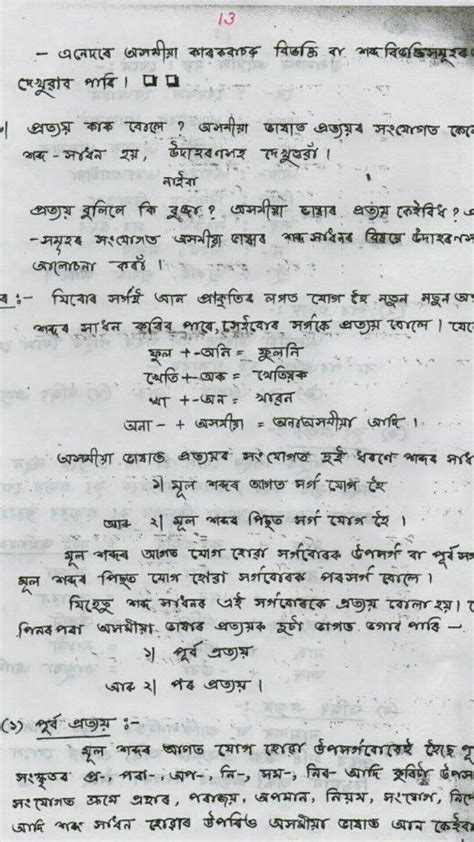 13
- এনেদৰে অসমীয়া কাৰকবাচক বিভক্তি বা শব্দ বিভক্তিসমূহৰ
দেখুৱাব পাৰি।
প্ৰত্যয় কাক বোলে? অসমীয়া ভাষাত প্ৰত্যয়ৰ সংযোগত কেনে
শব্দ-সাধন হয়, উদাহৰণসহ দেখুওৱাঁ।
নাইবা
প্ৰত্যয় বুলিলে কি বুজা? অসমীয়া ভাষাৰ প্ৰত্যয় কেইবিধ?
-সমূহৰ সংযোগত অসমীয়া ভাষাৰ শব্দ সাধনৰ বিষয়ে উদাহৰণস
আলোচনা কৰাঁ।
ৰ :- যিবোৰ সৰ্গই আন প্ৰকৃতিৰ লগত যোগ হৈ নতুন নতুন অ
শব্দৰ সাধন কৰিব পাৰে, সেইবোৰ সৰ্গকে প্ৰত্যয় বোলে। যে
ফুল + -অনি = ফুলনি
খেতি + -অক = খেতিয়ক
খা + -অন = খাৱন
অনা - + অসমীয়া = অনাঅসমীয়া আদি।
অসমীয়া ভাষাত প্ৰত্যয়ৰ সংযোগত দুই ধৰণে শব্দৰ সাধ
১) মূল শব্দৰ আগত সৰ্গ যোগ হৈ
আৰু ২) মূল শব্দৰ পিছত সৰ্গ যোগ হৈ।
মূল শব্দৰ আগত যোগ হোৱা সৰ্গবোৰক উপসৰ্গ বা পূৰ্ব সৰ্গ
মূল শব্দৰ পিছত যোগ হোৱা সৰ্গবোৰক পৰসৰ্গ বোলে।
যিহেতু শব্দ সাধনৰ এই সৰ্গবোৰকে প্ৰত্যয় বোলা হয়।
পিনৰপৰা অসমীয়া ভাষাৰ প্ৰত্যয়ক দুটা ভাগত ভগাব পাৰি -
১) পূৰ্ব প্ৰত্যয়
আৰু ২) পৰ প্ৰত্যয়।
(১) পূৰ্ব প্ৰত্যয় :-
মূল শব্দৰ আগত যোগ হোৱা উপসৰ্গবোৰেই হৈছে পূ
সংস্কৃতৰ প্ৰ- পৰা-, অপ-, নি-, সম-, নিৰ- আদি কুৰিটা উপস
সংযোগত ক্ৰমে প্ৰহাৰ, পৰাজয়, অপমান, নিয়ম, সংযোগ, নি
আদি শব্দ সাধন হোৱাৰ উপৰিও অসমীয়া ভাষাত আন কেইবা